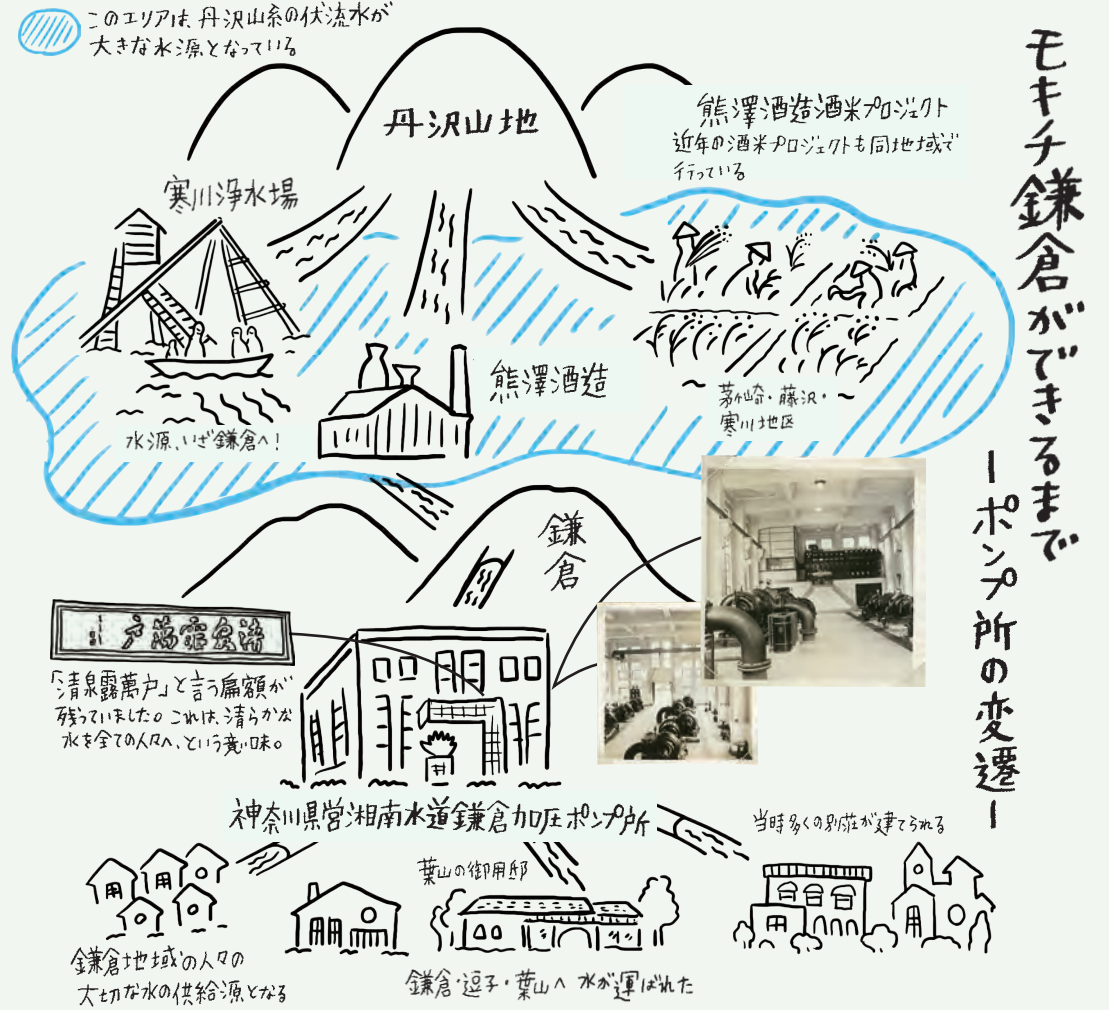 モキチ鎌倉ができるまで
ーポンプ所の変遷ー
このエリアは、丹沢山系の伏流水が
大きな水源となっている
丹沢山地
熊澤酒造酒米プロジェクト
近年の酒米プロジェクトも同地域で
行っている
寒川浄水場
水源、いざ鎌倉へ!
熊澤酒造
〜茅ヶ崎・藤沢・〜
寒川地区
鎌倉
戸萬霑泉清
「清泉霑萬戸」と言う扁額が
残っていました。これは、清らかな
水を全ての人々へ、という意味。
神奈川県営湘南水道鎌倉加圧ポンプ所
当時多くの別荘が建てられる
葉山の御用邸
鎌倉地域の人々の
大切な水の供給源となる
鎌倉・逗子・葉山へ 水が運ばれた